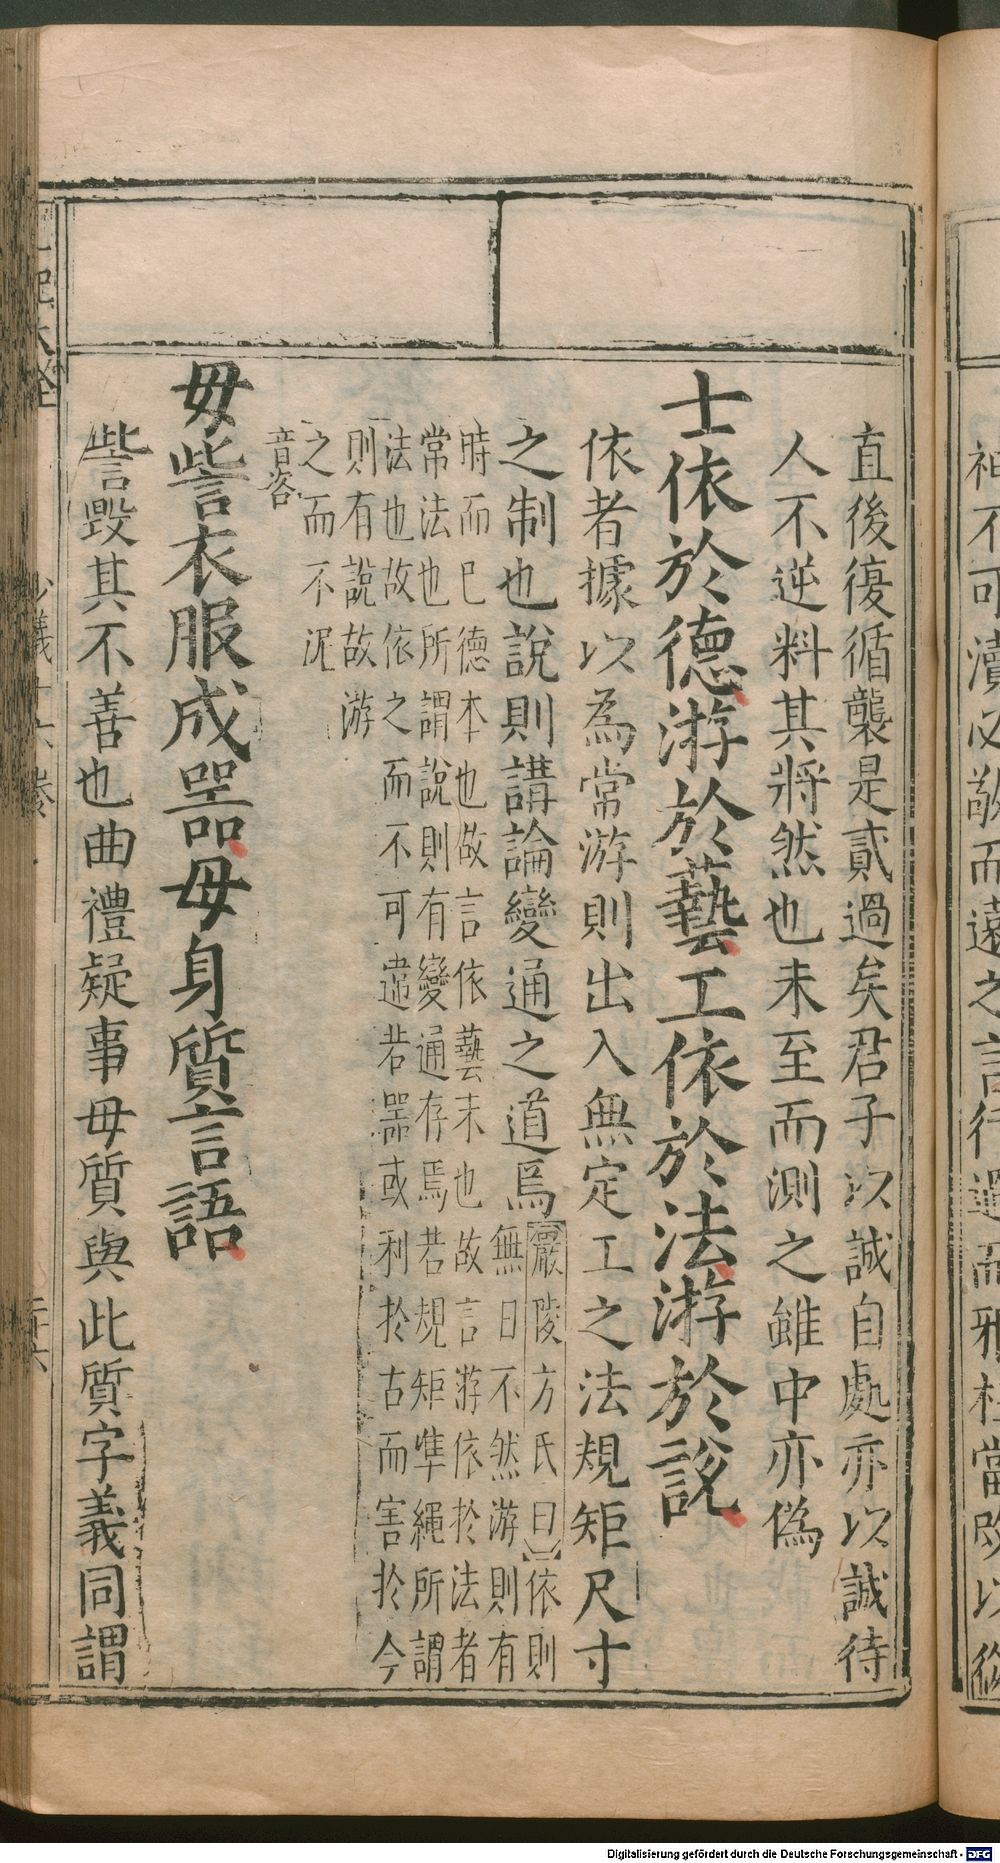 直後復循襲是貳過矣君子以誠自處亦以誠待
人不逆料其將然也未至而測之雖中亦偽
士依於德游於藝工依於法游於說
依者據以為常游則出入無定工之法規矩尺寸
之制也說則講論變通之道焉
嚴陵方氏曰依則
無日不然游則有
時而已德本也故言依藝末也故言游依於法者
常法也所謂說則有變通存焉若規矩準繩所謂
法也故依之而不可違若器或利於古而害於今
則有說故游
之而不泥
音咨
毋訾衣服成器毋身質言語
訾毀其不善也曲禮疑事毋質與此質字義同謂
Digitalisierung gefördert durch die Deutsche Forschungsgemeinschaft - DFG